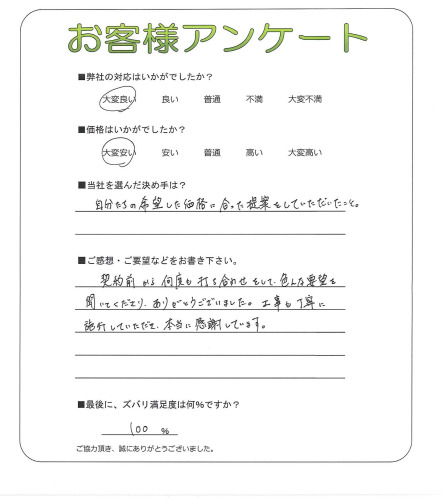 お客様アンケート
■弊社の対応はいかがでしたか?
大変良い 良い 普通 不満 大変不満
■価格はいかがでしたか?
大変安い 安い 普通 高い 大変高い
■当社を選んだ決め手は?
自分たちの希望した価格に合った提案をしていただいたこと。
■ご感想・ご要望などをお書き下さい。
契約前から何度も打ち合わせをして、色んな要望を
聞いてくださり、ありがとうございました。工事も丁寧に
施行していただき、本当に感謝しています。
■最後に、ズバリ満足度は何%ですか?
100 %
ご協力頂き、誠にありがとうございました。